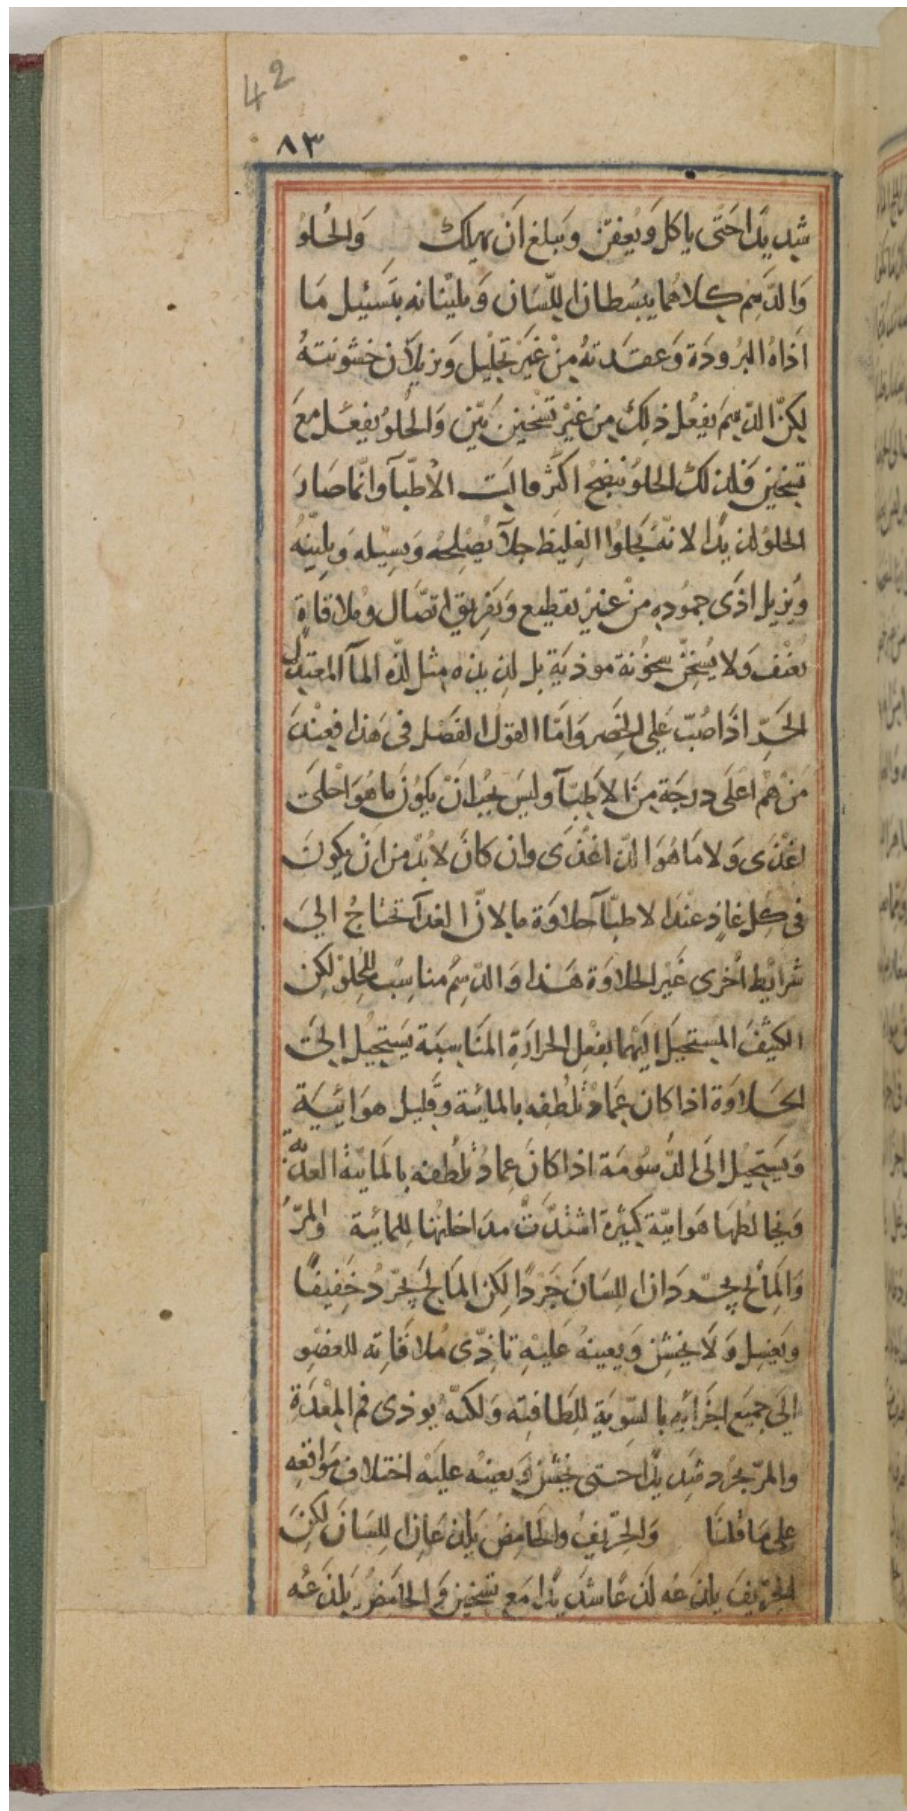 42
٨٣
شديدًا حَتّى ياكل وَيُعِفّن وَيبلغ اَنْ يهلك وَالحُلوُ
وَالدّسِم كِلاهُما يبسُطان اللّسَان وَيليّنانه بتَسئيل مَا
اَذاهُ البرُودَة وَعقدتهُ مِنْ غَيرْ تحلْيل وَيزيلاَن خشونتهُ
لكِنّ الدسِمَ يفعُل ذلِك مِن غيْر تسْخين بيّن وَالحُلوُ يفعَل مَع
تسخينٍ فلذلك الحلوُ ينضجُ اكثَر قالت الاْطبّآ وانّما صَارَ
الحلوُ لذيذًا لانّهُ يَجلوُا الغِليظَ جلآ يُصْلِحُه وَيسِيّله وَيليّنهُ
وَيُزيل اذَى جموُدِه مِنْ غير تقطيع وَتفريق اتصَّال وَمُلاقاةٍ
بعُنْف وَلا يُسَخِّن سخوُنة موذيَة بل لذيذه مِثل لذّه المآ المعتدل
الحَرِّ اذاَ صُبّ عَلى الخَصر وَامّا القول الفصْل فى هَذا فعِنْدَ
مَنْ هُم اعْلَى درجَة مِنَ الاَطبّآ وليسَ يجبُ انْ يكوُنَ ماهُوَ احْلىَ
اغْذَى وَلا مَا هُوَ الذّ اغْذَى وان كانَ لا بُدّ من اَنْ يكونَ
فى كلِ غاذٍ عنْدَ الاطبّآ حلاوَة ما لانّ الغذآ تحتاجُ الىَ
شرايْط اُخْرى غَيْر الحلاوَة هَذا وَالدّسِمُ مناسِبٌ لِلحُلوْ لكِن
الكثيفَ المسْتحيلَ اليَهما بفعْلِ الحرارَةِ المناسَبة يَستحيُل الىَ
الحَلاوَة اذا كان عمَادُ تلطُفِه بالمائية وَقليل هوَائيَّة
وَيسَتحيْل الَى الدّسُومَة اذا كانَ عِمادُ تلُطفه بالمَائية العذبة
وَيخالطهَا هَوائيّة كثيرة اشتدّتْ مدَاخلتُها للمائية وَالمُرّ
وَالمَالِح يجرّدَان اللِسَانَ جَردًا لكِن المَالحَ يَجْرُد خَفِيفًا
وَيغسِل وَلاَ يخشِّن وَيعينهُ عَليْه تاذِّى مُلاقاتِه للعُضْو
الىَ جمَيع اجْزائه بالسّويَة لِلطَافتِه وَلكنّه يوذى فم المعْدَة
والمرّ يجرُد شديدًا حَتىّ يخشّن وَيعينهُ عليْه اختلاف مَواقعه
عَلى مَا قُلنَا وَالحِرّيفُ والحامِضُ يَلذَعان اللِسَان لكِنَ
الحِرّيفَ يلذعَه لذعًا شديدًا مَع تسخين وَالحامَضُ يَلذعُه